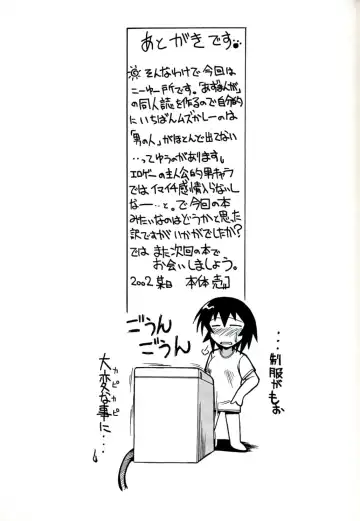 あとがきです
そんなわけで今回は
こーゆー所です。「あずまんが」
の同人誌を作るので自分的
にいちばんムズかしーのは
「男の人」がほとんど出てない
…ってゆうのがあります。
エロゲーの主人公的男キャラ
ではイマイチ感情入らないし
なー…と。で今回の本
みたいなのはどうかと思った
訳ですがいかがでしたか?
では また次回の本で
お会いしましょう。
2002 某日 本体 売
ごうん
ごうん
…制服がもお
大変な事に…
カピカピ